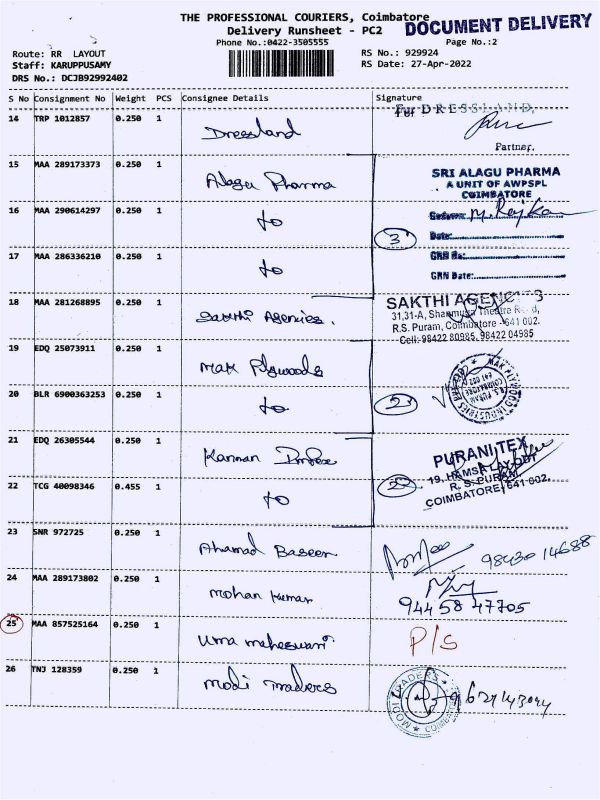 THE PROFESSIONAL COURIERS, Coimbatore
DOCUMENT DELIVERY
Delivery Runsheet - PC2
Phone No.:0422-3505555
Page No.:2
Route: RR LAYOUT
RS No.: 929924
Staff: KARUPPUSAMY
RS Date: 27-Apr-2022
DRS No.: DCJB92992402
S No Consignment No Weight PCS Consignee Details Signature
14 TRP 1012857 0.250 1 Dressland
For DRESSLAND,
Partner.
15 MAA 289173373 0.250 1 Alagu Pharma
SRI ALAGU PHARMA
A UNIT OF AWPSPL
COIMBATORE
16 MAA 290614297 0.250 1 to
3
Date:
17 MAA 286336210 0.250 1 to
GRN No:
GRN Date:
18 MAA 281268895 0.250 1 Sakthi Agencies.
SAKTHI AGENCIES
31,31-A, Shanmuga Theatre Road,
R.S. Puram, Coimbatore - 641 002.
Cell: 98422 80985, 98422 04985
19 EDQ 25073911 0.250 1 Mak Plywoods
MAK PLYWOOD INDUSTRIES
20 BLR 6900363253 0.250 1 to
2
21 EDQ 26305544 0.250 1 Kannan
PURANI TEX
19, HAMSA LAYOUT
R. S. PURAM,
COIMBATORE, 641 002.
22 TCG 40098346 0.455 1 to
23 SNR 972725 0.250 1 Ahamad Baseer
98430 14688
24 MAA 289173802 0.250 1 Mohan Kumar
94458 47705
25 MAA 857525164 0.250 1 Uma maheswari
P/S
26 TNJ 128359 0.250 1 Modi Traders
MODI TRADERS
COIMBATORE